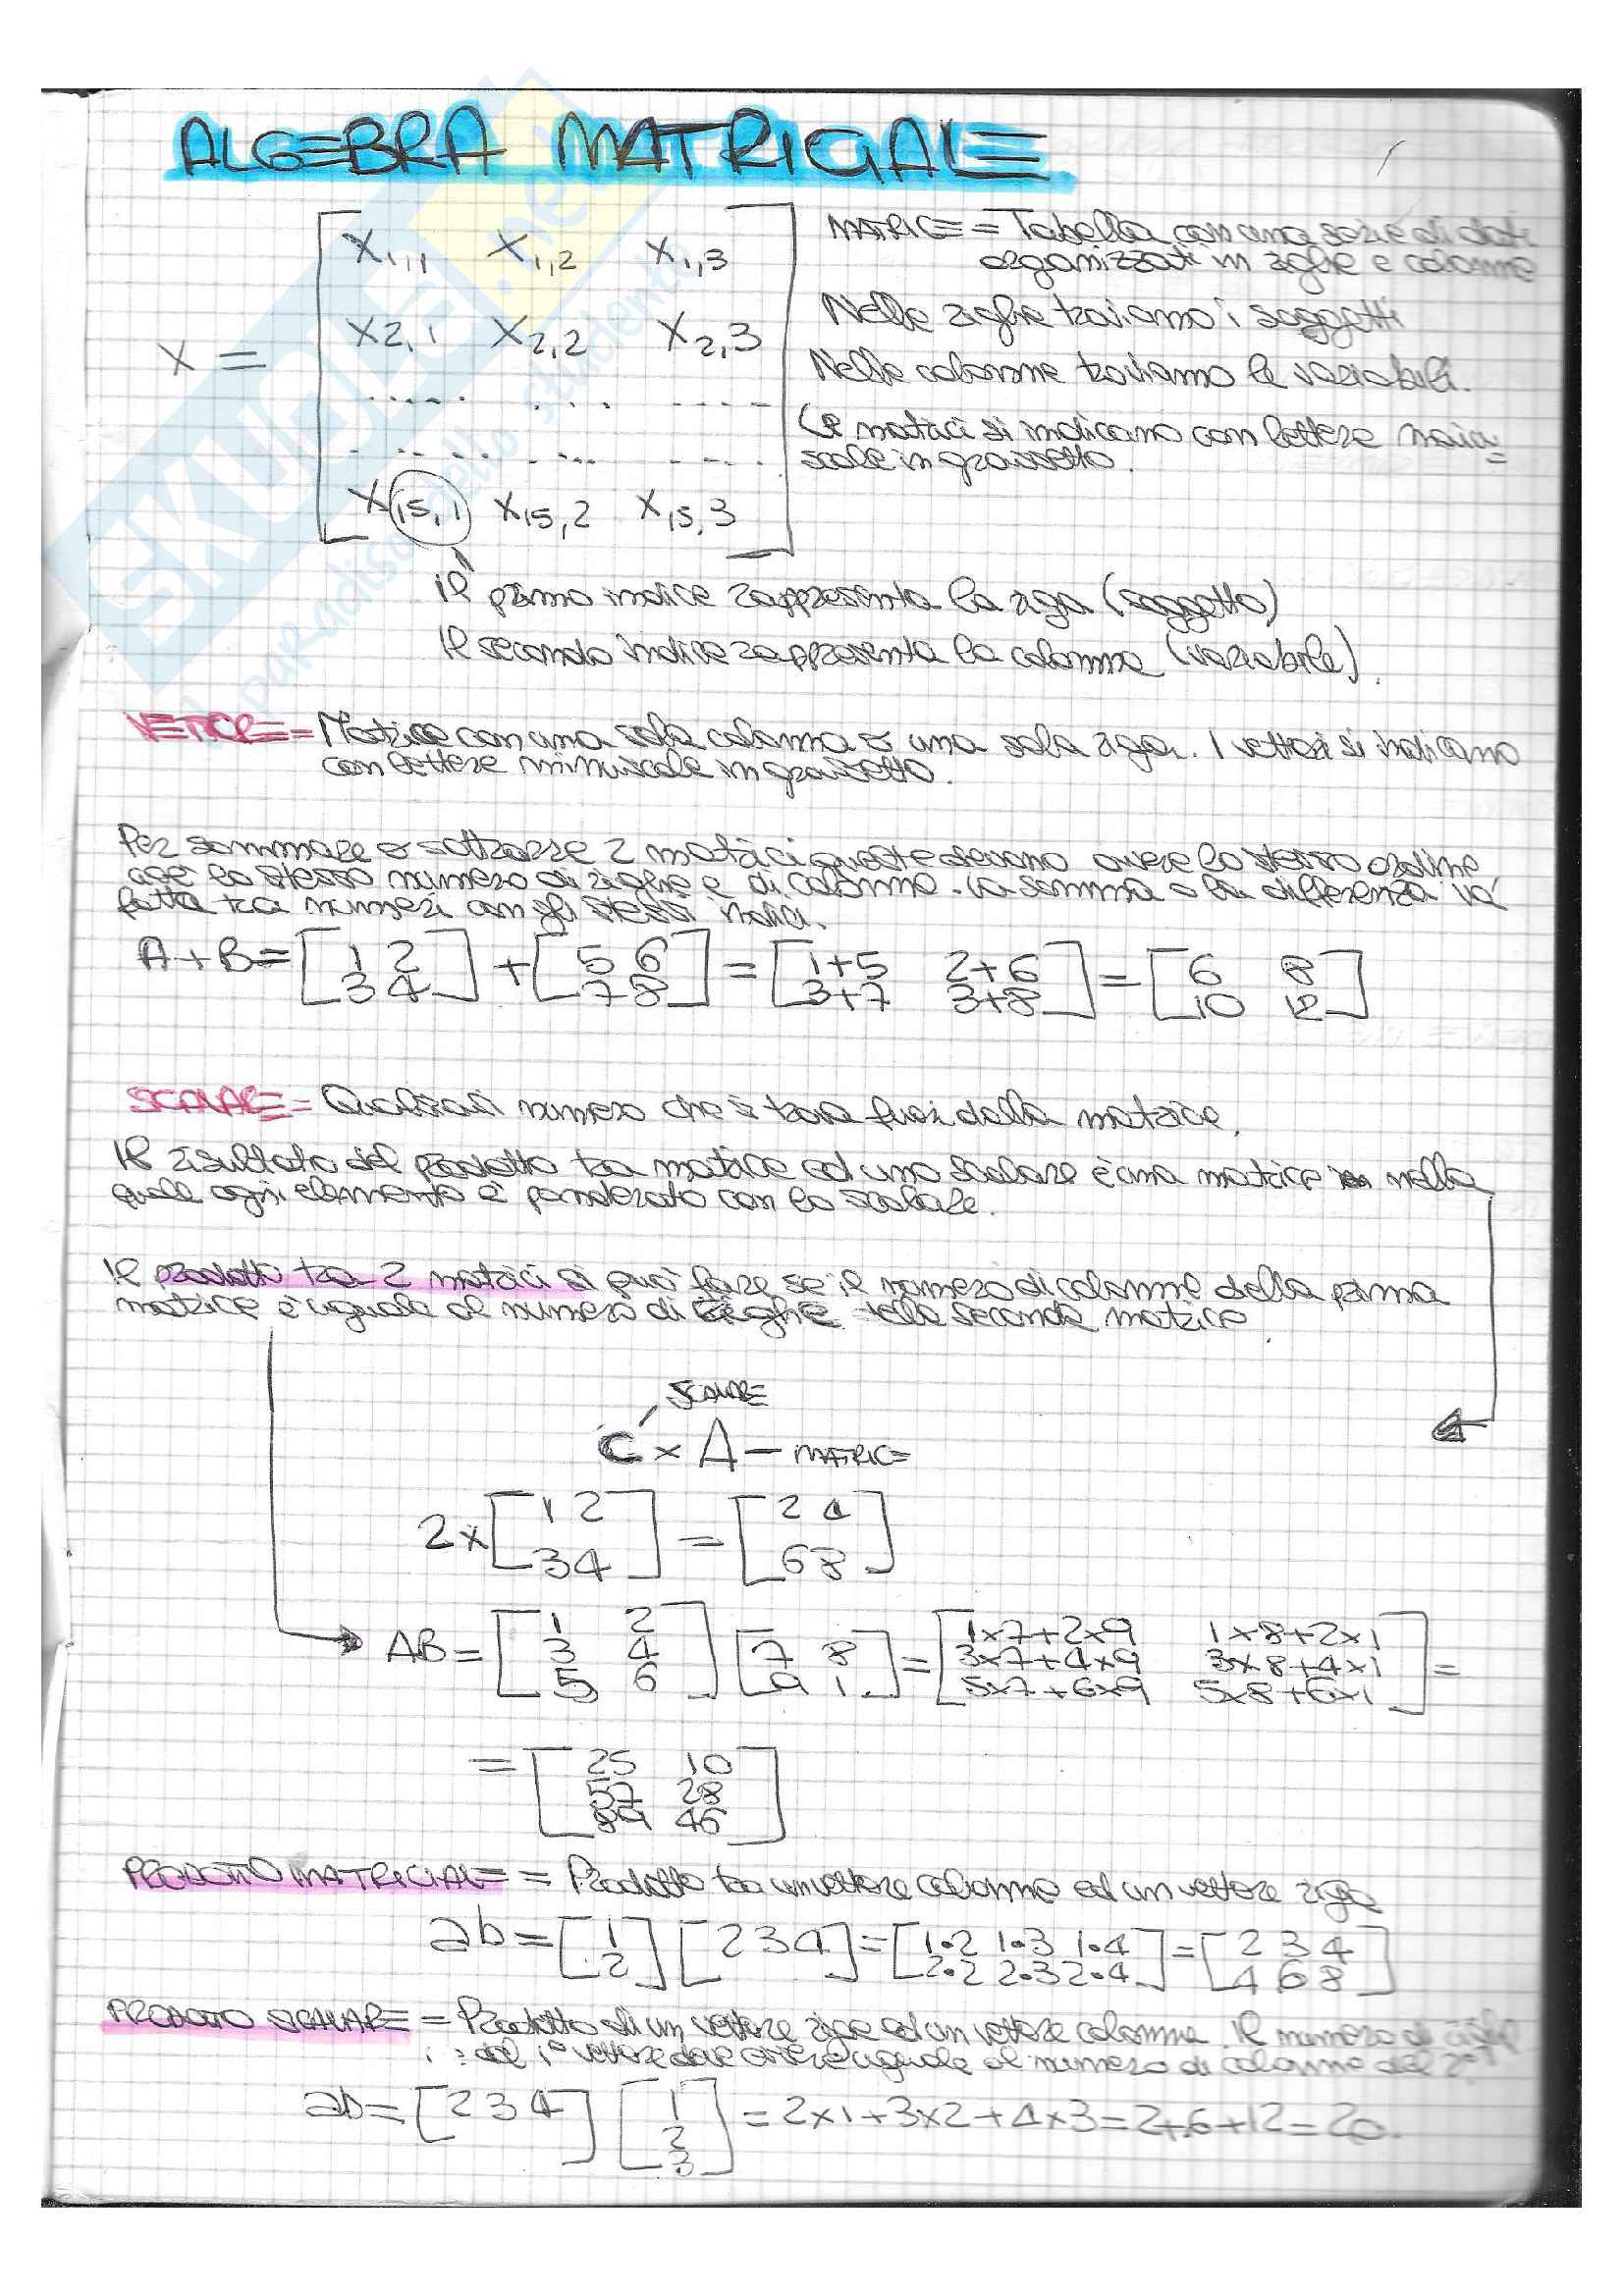 ALGEBRA MATRICIALE
X = [ X1,1 X1,2 X1,3
X2,1 X2,2 X2,3
..... .... .....
..... .... .....
X15,1 X15,2 X15,3 ]
MATRICE = Tabella con una serie di dati
organizzati in righe e colonne
Nelle righe troviamo i soggetti
Nelle colonne troviamo le variabili.
Le matrici si indicano con lettere maiu=
scole in grassetto.
Il primo indice rappresenta la riga (soggetto)
Il secondo indice rappresenta la colonna (variabile).
VETTORE = Matrice con una sola colonna o una sola riga. I vettori si indicano
con lettere minuscole in grassetto.
Per sommare o sottrarre 2 matrici queste devono avere lo stesso ordine
cioè lo stesso numero di righe e di colonne. La somma o la differenza va
fatta tra numeri con gli stessi indici.
A+B= [ 1 2 ] + [ 5 6 ] = [ 1+5 2+6 ] = [ 6 8 ]
[ 3 4 ] [ 7 8 ] [ 3+7 3+8 ] [ 10 12 ]
SCALARE = Qualsiasi numero che si trova fuori dalla matrice.
Il risultato del prodotto tra matrice ed uno scalare è una matrice nella
quale ogni elemento è ponderato con lo scalare.
Il prodotto tra 2 matrici si può fare se il numero di colonne della prima
matrice è uguale al numero di righe della seconda matrice.
SCALARE
C x A - MATRICE
2x [ 1 2 ] = [ 2 4 ]
[ 3 4 ] [ 6 8 ]
AB= [ 1 2 ] [ 7 8 ] = [ 1x7+2x9 1x8+2x1 ] =
[ 3 4 ] [ 9 1 ] [ 3x7+4x9 3x8+4x1 ]
[ 5 6 ] [ 5x7+6x9 5x8+6x1 ]
= [ 25 10 ]
[ 57 28 ]
[ 89 46 ]
PRODOTTO MATRICIALE = Prodotto tra un vettore colonna ed un vettore riga
ab= [ 1 ] [ 2 3 4 ] = [ 1•2 1•3 1•4 ] = [ 2 3 4 ]
[ 2 ] [ 2•2 2•3 2•4 ] [ 4 6 8 ]
PRODOTTO SCALARE = Prodotto di un vettore riga ed un vettore colonna. Il numero di righe
del 1° vettore deve essere uguale al numero di colonne del 2°.
ab= [ 2 3 4 ] [ 1 ] = 2x1+3x2+4x3=2+6+12=20.
[ 2 ]
[ 3 ]
SKUOLA.net
il paradiso dello studente